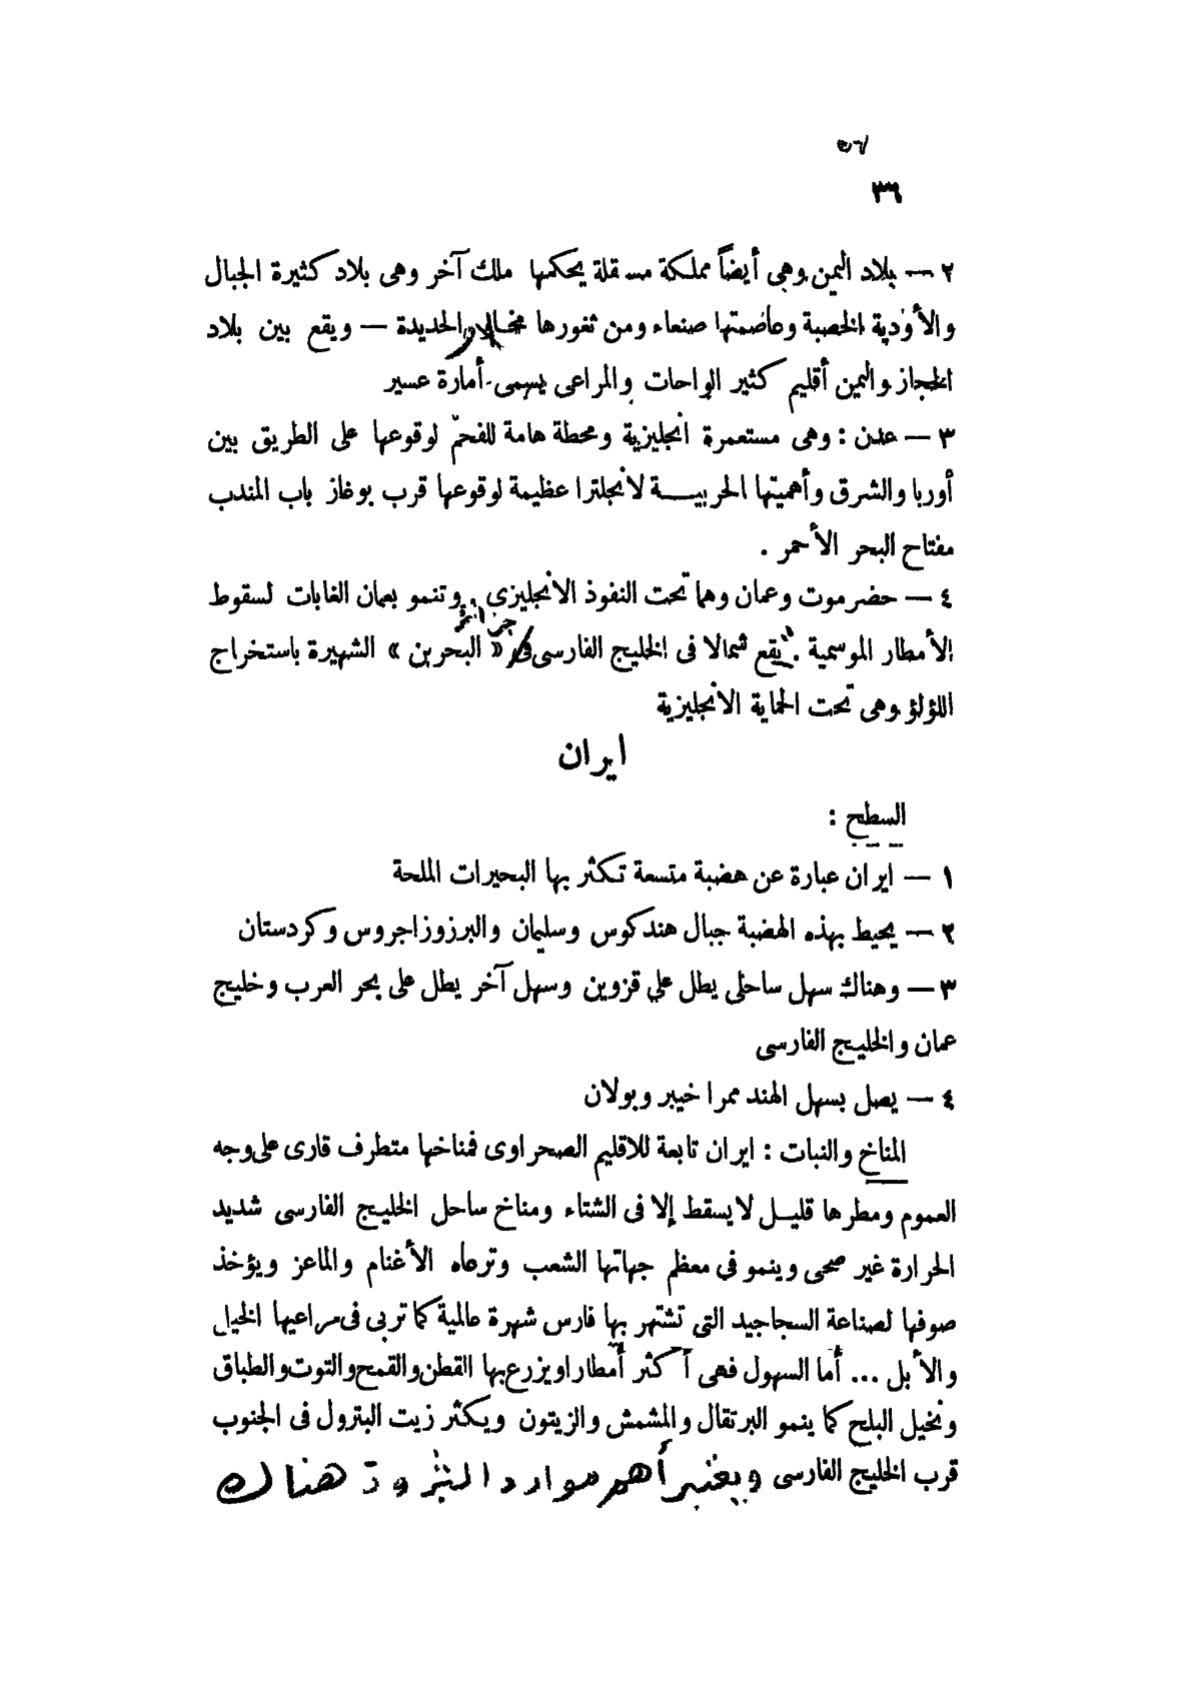 ٣٦
٢ — بلاد اليمن وهى أيضاً مملكة مستقلة يحكمها ملك آخر وهى بلاد كثيرة الجبال
والأودية الخصبة وعاصمتها صنعاء ومن ثغورها الحديدة — ويقع بين بلاد
الحجاز واليمن أقليم كثير الواحات والمراعى يسمى أمارة عسير
٣ — عدن : وهى مستعمرة انجليزية ومحطة هامة للفحم لوقوعها على الطريق بين
أوربا والشرق وأهميتها الحربيـــة لانجلترا عظيمة لوقوعها قرب بوغاز باب المندب
مفتاح البحر الأحمر .
٤ — حضرموت وعمان وهما تحت النفوذ الانجليزى . وتنمو بعمان الغابات لسقوط
الأمطار الموسمية . يقع شمالا فى الخليج الفارسى جزائر « البحرين » الشهيرة باستخراج
اللؤلؤ وهى تحت الحماية الانجليزية
ايران
السطح :
١ — ايران عبارة عن هضبة متسعة تكثر بها البحيرات الملحة
٢ — يحيط بهذه الهضبة جبال هندكوس وسليمان والبرزوزاجروس وكردستان
٣ — وهناك سهل ساحلى يطل علي قزوين وسهل آخر يطل على بحر العرب وخليج
عمان والخليج الفارسى
٤ — يصل بسهل الهند ممرا خيبر وبولان
المناخ والنبات : ايران تابعة للاقليم الصحراوى فمناخها متطرف قارى على وجه
العموم ومطرها قليـــل لايسقط إلا فى الشتاء ومناخ ساحل الخليج الفارسى شديد
الحرارة غير صحى وينمو في معظم جهاتها الشعب وترعاه الأغنام والماعز ويؤخذ
صوفها لصناعة السجاجيد التى تشتهر بها فارس شهرة عالمية كما تربى فى مراعيها الخيل
والأبل ... أما السهول فهى أكثر أمطارا ويزرع بها القطن والقمح والتوت والطباق
ونخيل البلح كما ينمو البرتقال والمشمش والزيتون ويكثر زيت البترول فى الجنوب
قرب الخليج الفارسى ويعتبر أهم موارد الثروة هناك